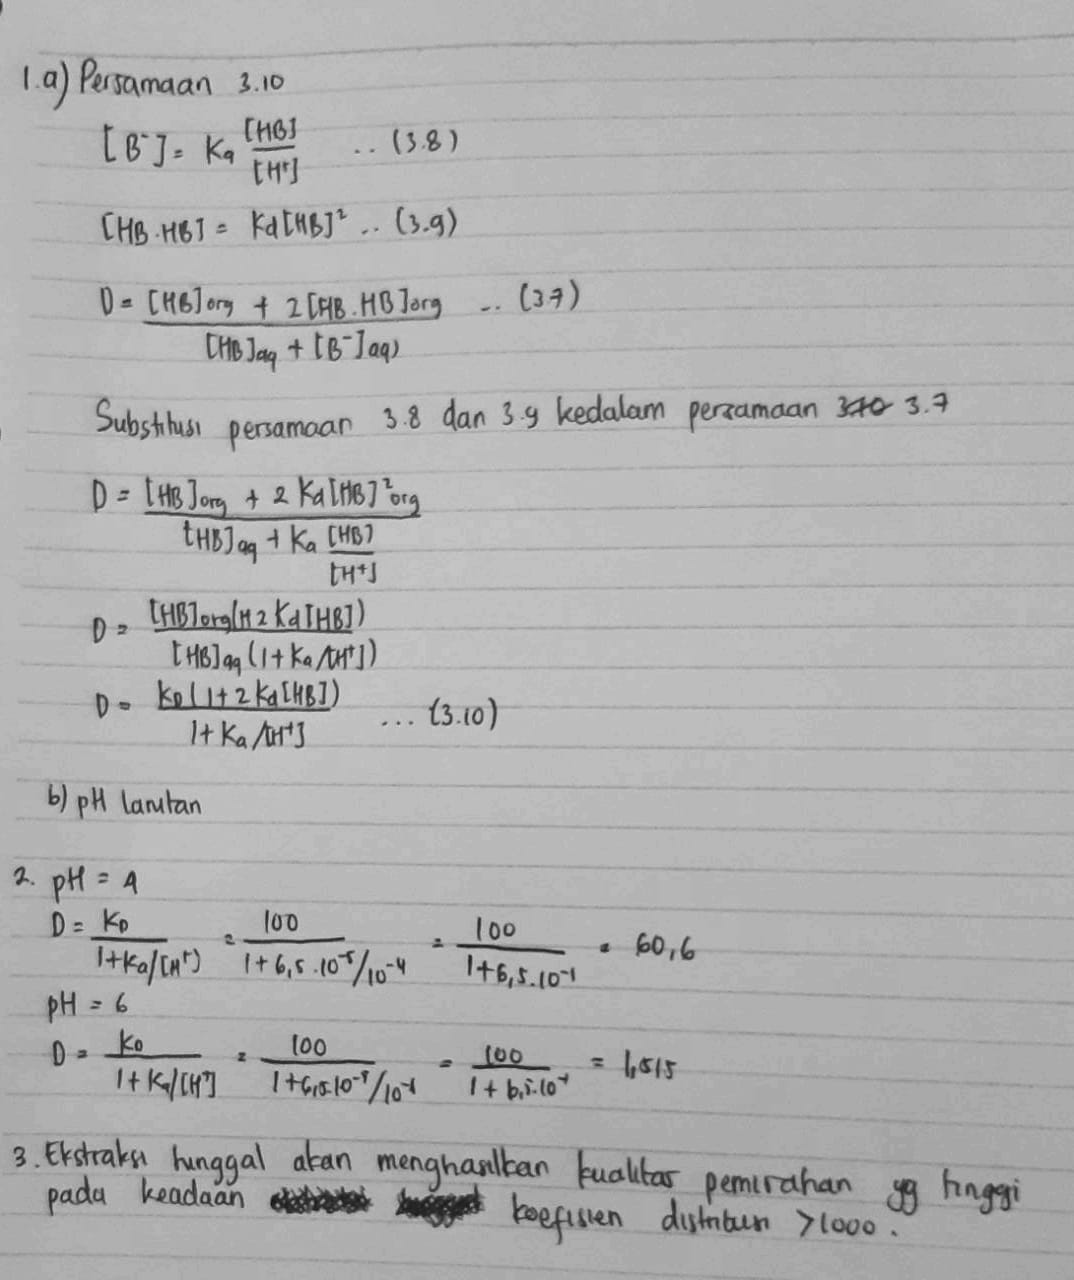 1.a) Persamaan 3.10
[B⁻] = Ka [HB]/[H⁺] .. (3.8)
[HB.HB] = Kd[HB]² .. (3.9)
D = [HB]org + 2[HB.HB]org / [HB]aq + [B⁻]aq) .. (3.7)
Substitusi persamaan 3.8 dan 3.9 kedalam persamaan 3.10 3.7
D = [HB]org + 2 Kd[HB]²org / [HB]aq + Ka [HB]/[H⁺]
D = [HB]org(1+2 Kd[HB]) / [HB]aq (1+Ka/[H⁺])
D = KD(1+2 Kd[HB]) / 1+Ka/[H⁺] ... (3.10)
b) pH larutan
2. pH = 4
D = KD / 1+Ka/[H⁺) = 100 / 1+6,5.10⁻⁵/10⁻⁴ = 100 / 1+6,5.10⁻¹ = 60,6
pH = 6
D = KD / 1+Ka/[H⁺] = 100 / 1+6,5.10⁻⁵/10⁻⁶ = 100 / 1+6,5.10 = 1,515
3. Ekstraksi tunggal akan menghasilkan kualitas pemisahan yg tinggi
pada keadaan koefisien distribusi >1000.